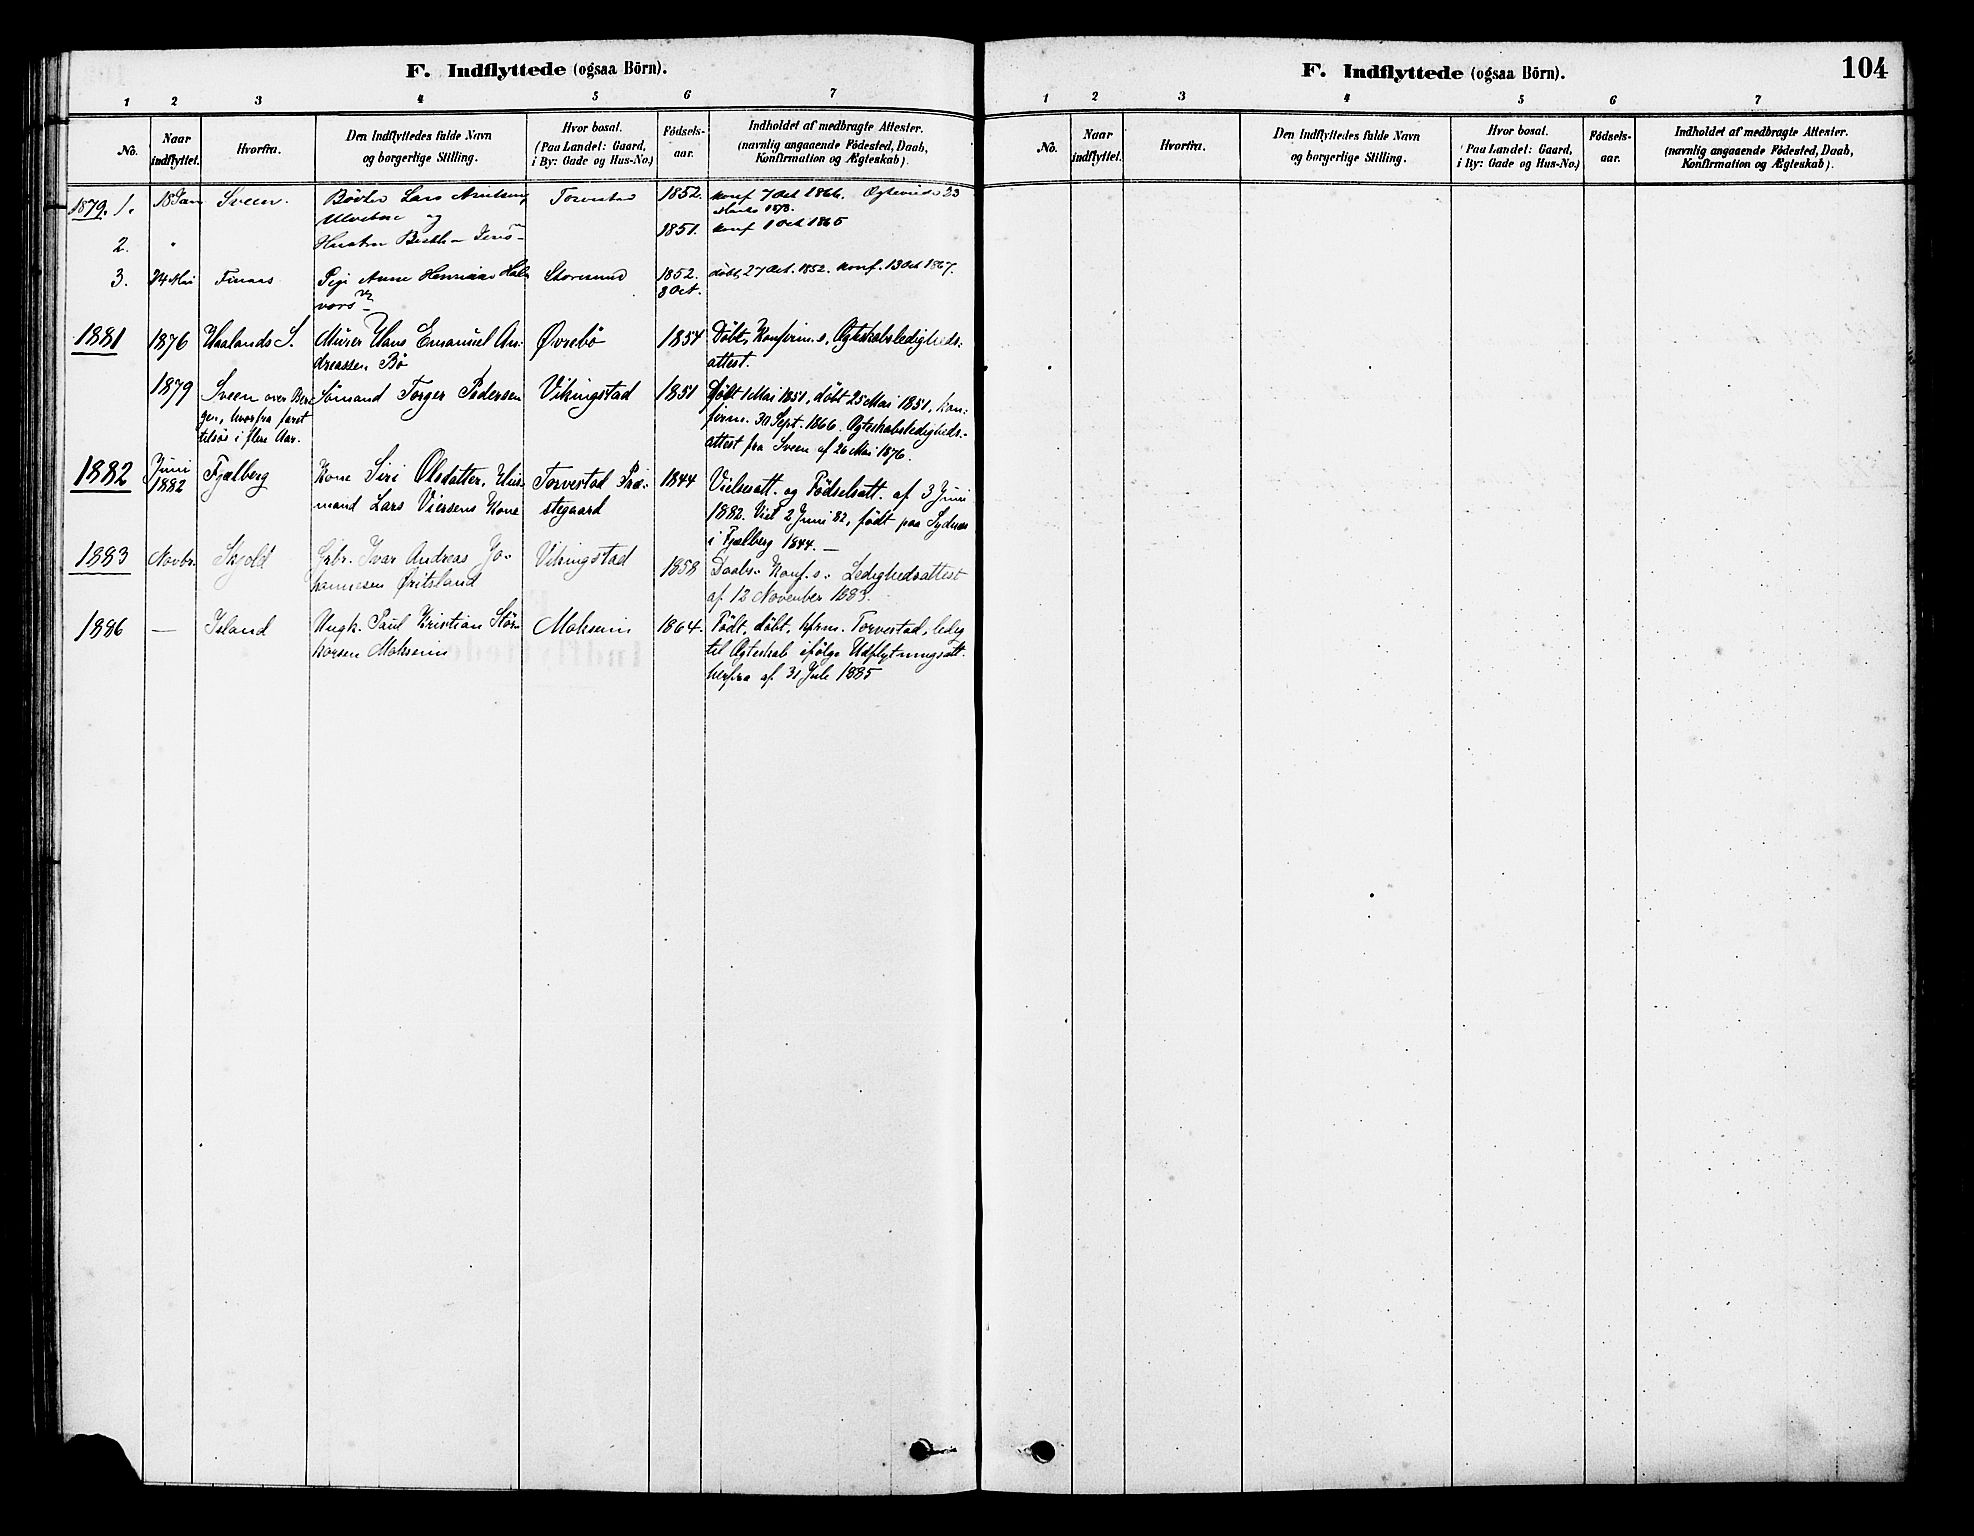 F. Indflyttede (ogsaa Börn).
1 2 3 4 5 6 7
No.
Naar
indflyttet.
Hvorfra.
Den Indflyttedes fulde Navn
og borgerlige Stilling.
Hvor bosat.
(Paa Landet: Gaard,
i By: Gade og Hus-No.)
Födsels-
aar.
Indholdet af medbragte Attester.
(navnlig angaaende Födested, Daab,
Konfirmation og Ægteskab).
1879. 1. 18 Jan Sveen. Lars 1852. konf 7 Oct 1866. 23
Marts 1873.
og
2. " Hustru 1851. konf 1 Oct 1865
3. 24 Mai Finaas Pige Anne Hal Storesund 1852. döbt 27 Oct. 1852. konf. 13 Oct 1867.
vors 8 Oct.
1881 1876 Haalands S. Murer Hans Emanuel An- Øvrebö 1854 Döbt, Konfirm. s, Ægteskabsledigheds-
dreassen Bö attest.
1879 Sveen over Ber- Sömand Torger Pedersen Vikingstad 1851 Födt 1 Mai 1851, döbt 25 Mai 1851, kon-
gen, hvorfra faret firm. 30 Sept. 1866. Ægteskabsledigheds-
tilsös i flere Aar. attest fra Sveen af 26 Mai 1876.
1882 Juni Fjælberg Kone Siri Olsdatter, Hus- Torvestad Præ- 1844 Vielsesatt. og Födselsatt. af 3 Juni
1882 mand Lars Viersens Kone stegaard 1882. Viet 2 Juni 82, födt paa Sydnæs
i Fjælberg 1844. —
1883 Novbr. Skjold Gbr. Ivar Andreas Jo- Vikingstad 1858 Daabs- Konf. s- Ledighedsattest
hannesen Øritsland af 12 November 1883.
1886 — Island Ungk. Paul Kristian Stör- Moksein 1864. Födt, döbt, kfrm. Torvestad, ledig
korsen til Ægteskab ifölge Udflytningsatt.
herfra af 31 Juli 1885
F. Indflyttede (ogsaa Börn).
104
1 2 3 4 5 6 7
No.
Naar
indflyttet.
Hvorfra.
Den Indflyttedes fulde Navn
og borgerlige Stilling.
Hvor bosat.
(Paa Landet: Gaard,
i By: Gade og Hus-No.)
Födsels-
aar.
Indholdet af medbragte Attester.
(navnlig angaaende Födested, Daab,
Konfirmation og Ægteskab).